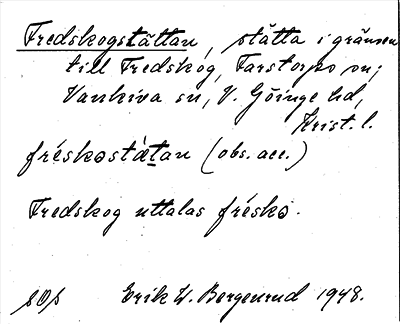 Fredskogstättan, stätta i gränsen
till Fredskog, Farstorps sn,
Vankiva sn, V. Göinge hd,
Krist. l.
fréskostǽtan (obs. acc.)
Fredskog uttalas frésko.
sOp Erik W. Bergenrud 1948.